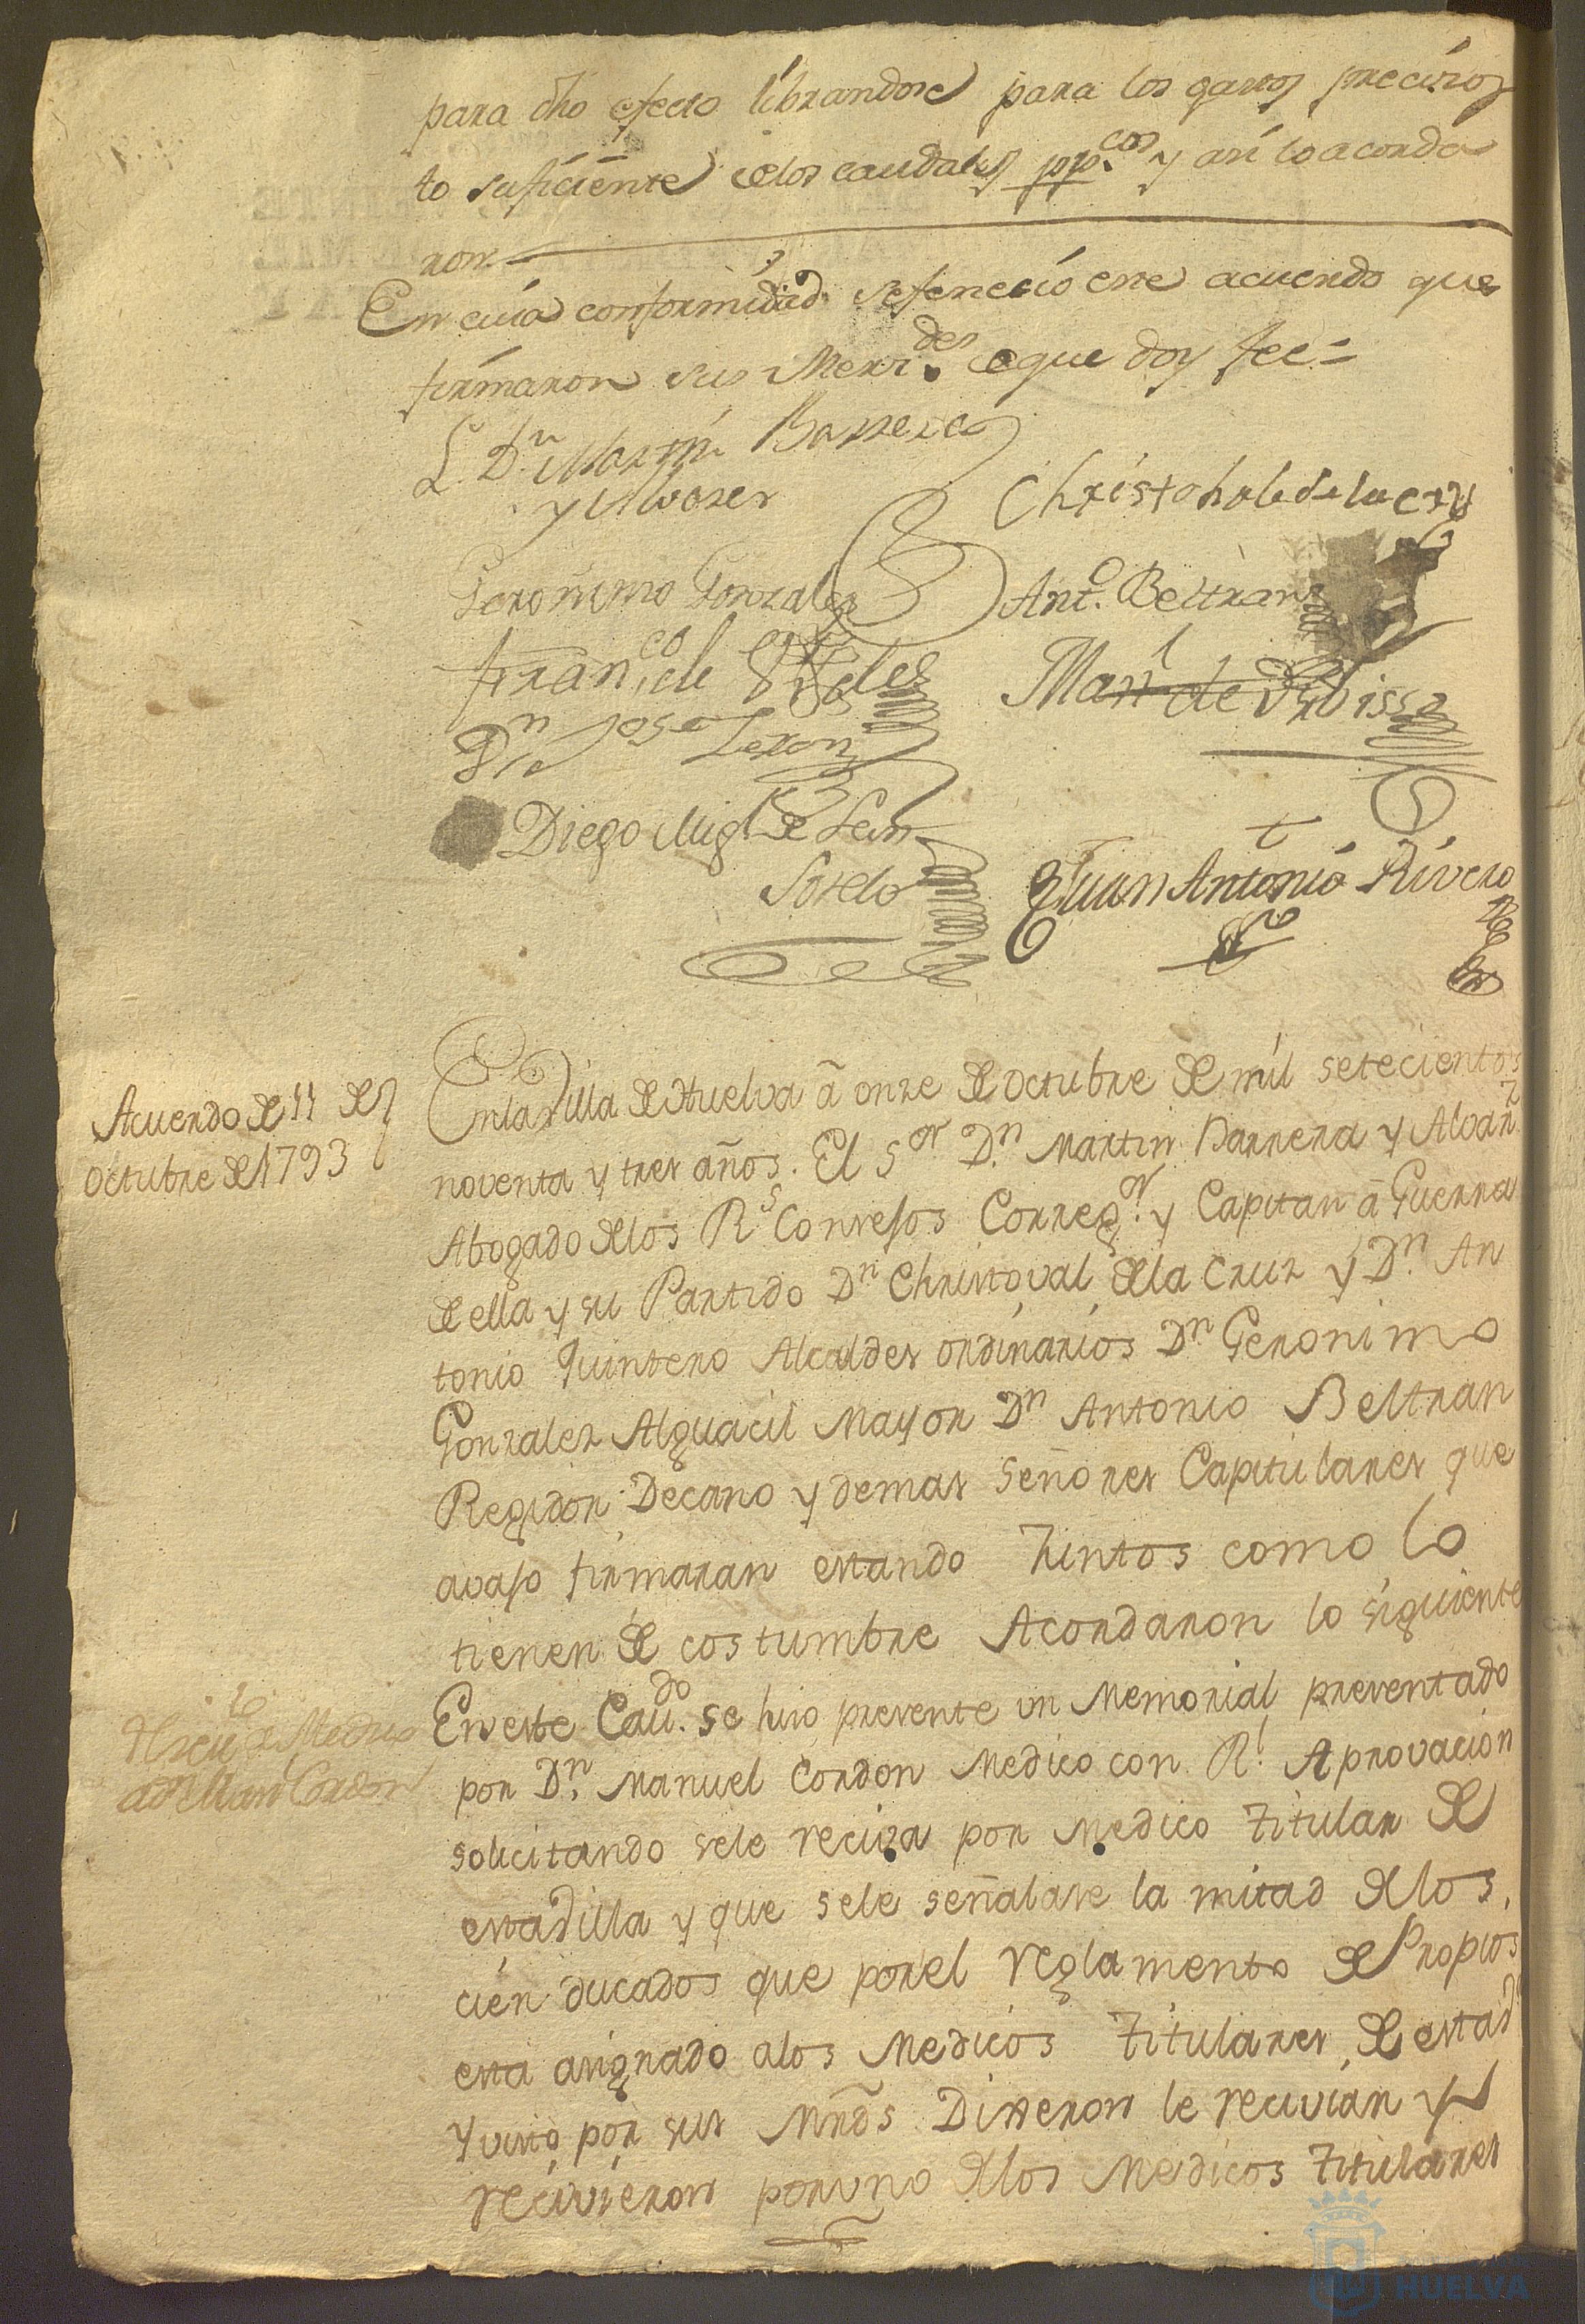 para dho efecto librandose para los gastos precisos
lo suficiente delos caudales pp.cos y asi lo acorda
ron.
En cuia conformidad se fenecio este acuerdo que
firmaron sus Merz.des de que doy fee=
L. Dn. Martin Barrera
y Alvarez
Christobal de la cruz
Geronimo Gonzalez
Anto. Beltran
Franco. de
Manl de
Dn Jose
Diego Migl. de Leon
Sotelo
Juan Antonio Rivero
Acuerdo de 11 de
Octubre de 1793
En la Villa de Huelva à onze de Octubre de mil setecientos
noventa y tres años. El Sor Dn. Martin Barrera y Alvarz
Abogado delos Rs. Consejos Correg.or y Capitan à Guerra
de ella y su Partido Dn Christoval de la Cruz y Dn. An
tonio Quintero Alcaldes ordinarios Dn Geronimo
Gonzalez Alguacil Mayor Dn Antonio Beltran
Regidor Decano y demas Señores Capitulares que
avajo firmaran estando Juntos como lo
tienen de costumbre Acordaron lo siguiente
En este Cavdo. se hizo presente un Memorial presentado
por Dn. Manuel Cordon Medico con Rl. Aprovacion
solicitando sele reciva por Medico titular de
esta Villa y que sele señalase la mitad delos
cien ducados que por el reglamento de Propios
esta asignado alos Medicos titulares de esta
y visto por sus Mrds Dixeron le recivian y
recivieron por uno delos Medicos titulares
Medico
Cordon
HUELVA